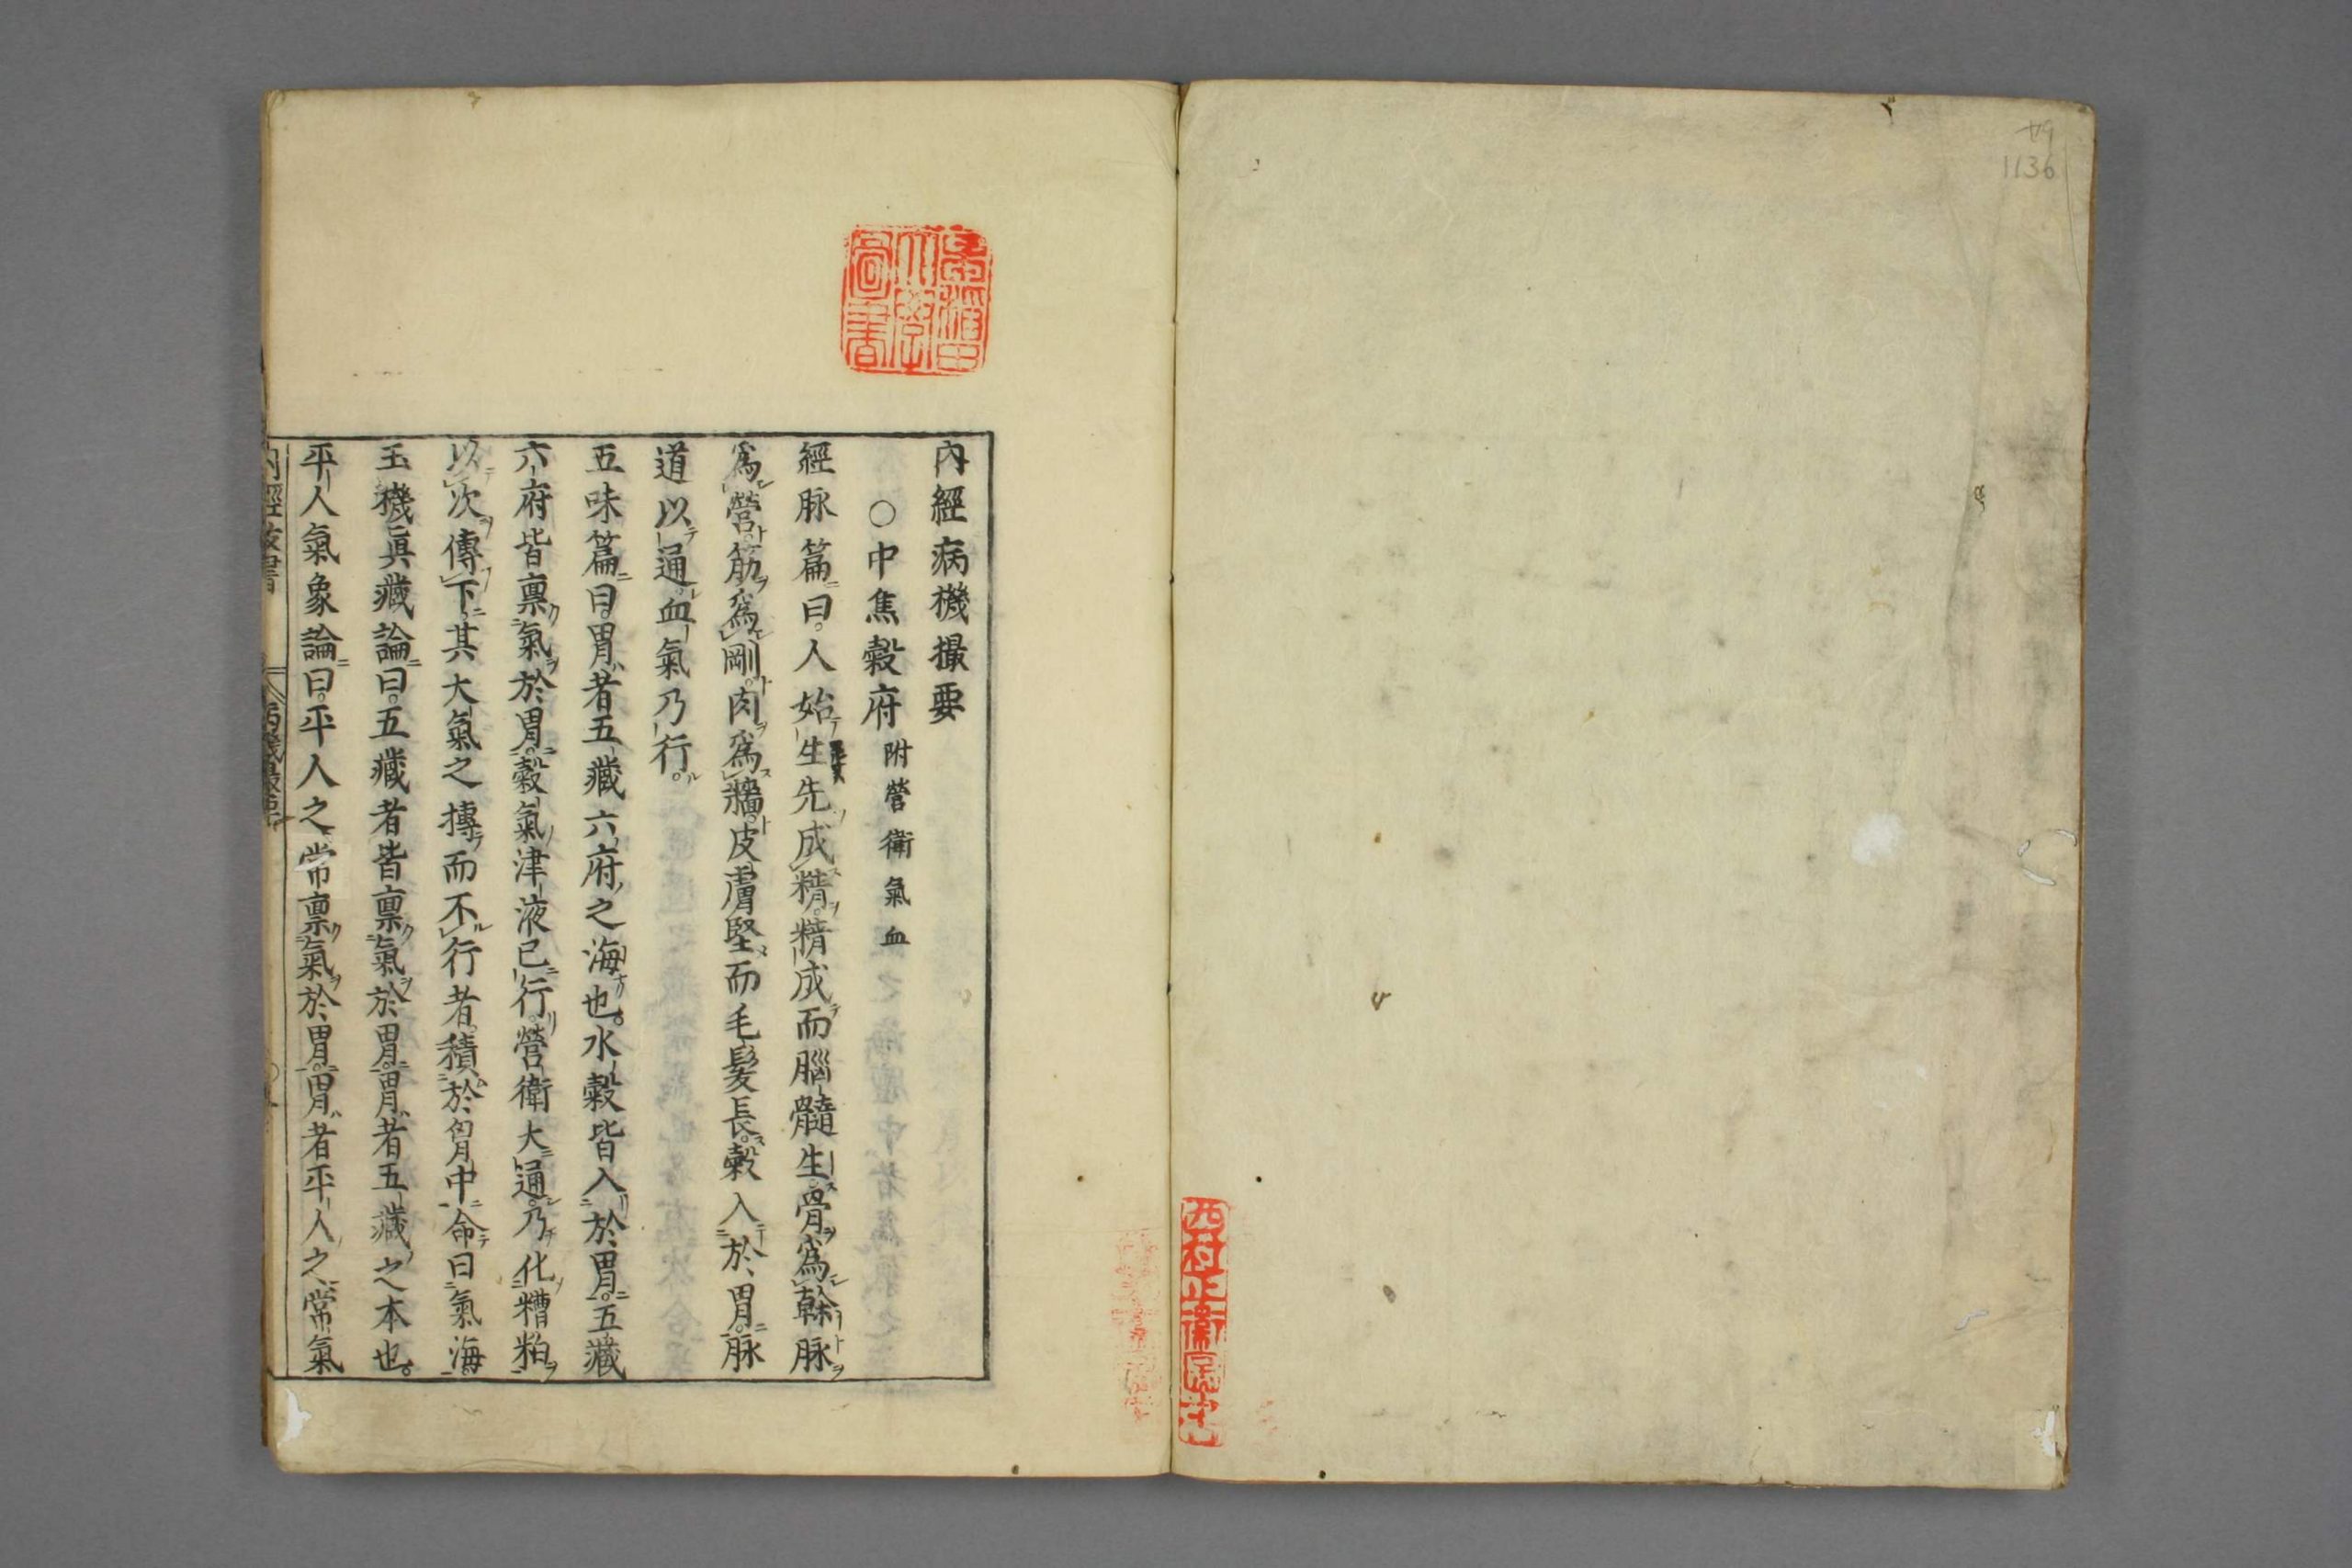 ヤ9
1136
早稲田大學圖書
内經病機撮要
○中焦穀府 附營衛氣血
經脉篇曰。人始生先成精。精成而腦髓生骨爲幹脉
爲營。筋爲剛。肉爲牆。皮膚堅而毛髮長。穀入於胃。脉
道以通。血氣乃行。
五味篇曰。胃者五藏六府之海也。水穀皆入於胃。五藏
六府皆禀氣於胃。穀氣津液已行。營衛大通。乃化糟粕
以次傳下。其大氣之摶而不行者。積於胷中命曰氣海
玉機眞藏論曰。五藏者皆禀氣於胃。胃者五藏之本也。
平人氣象論曰。平人之常禀氣於胃。胃者平人之常氣